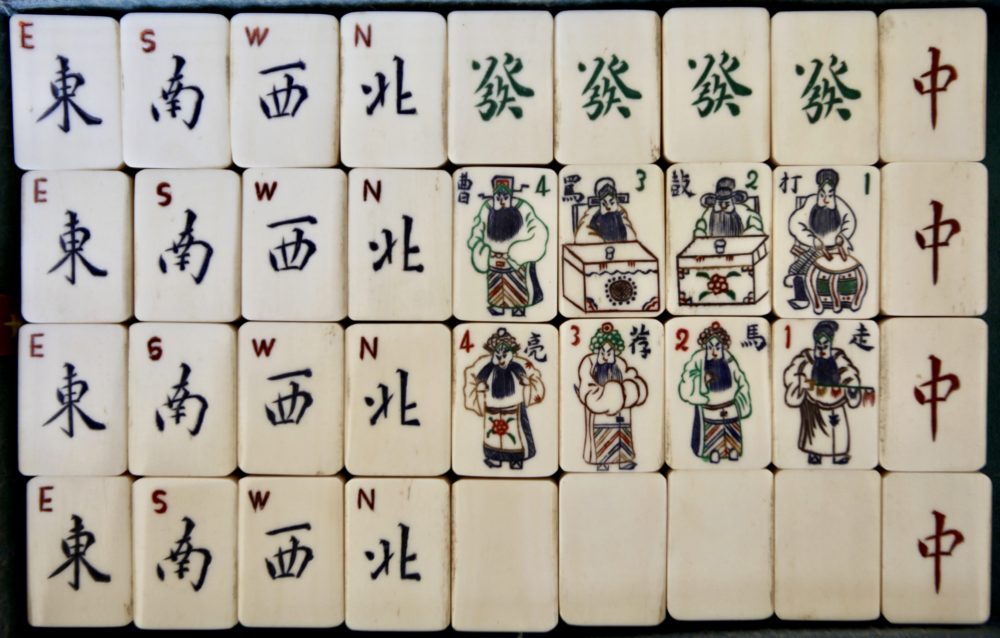 E 東 S 南 W 西 N 北 發 發 發 發 中
E 東 S 南 W 西 N 北 曹 4 罵 3 鼓 2 打 1 中
E 東 S 南 W 西 N 北 4 亮 3 荐 2 馬 1 走 中
E 東 S 南 W 西 N 北 中